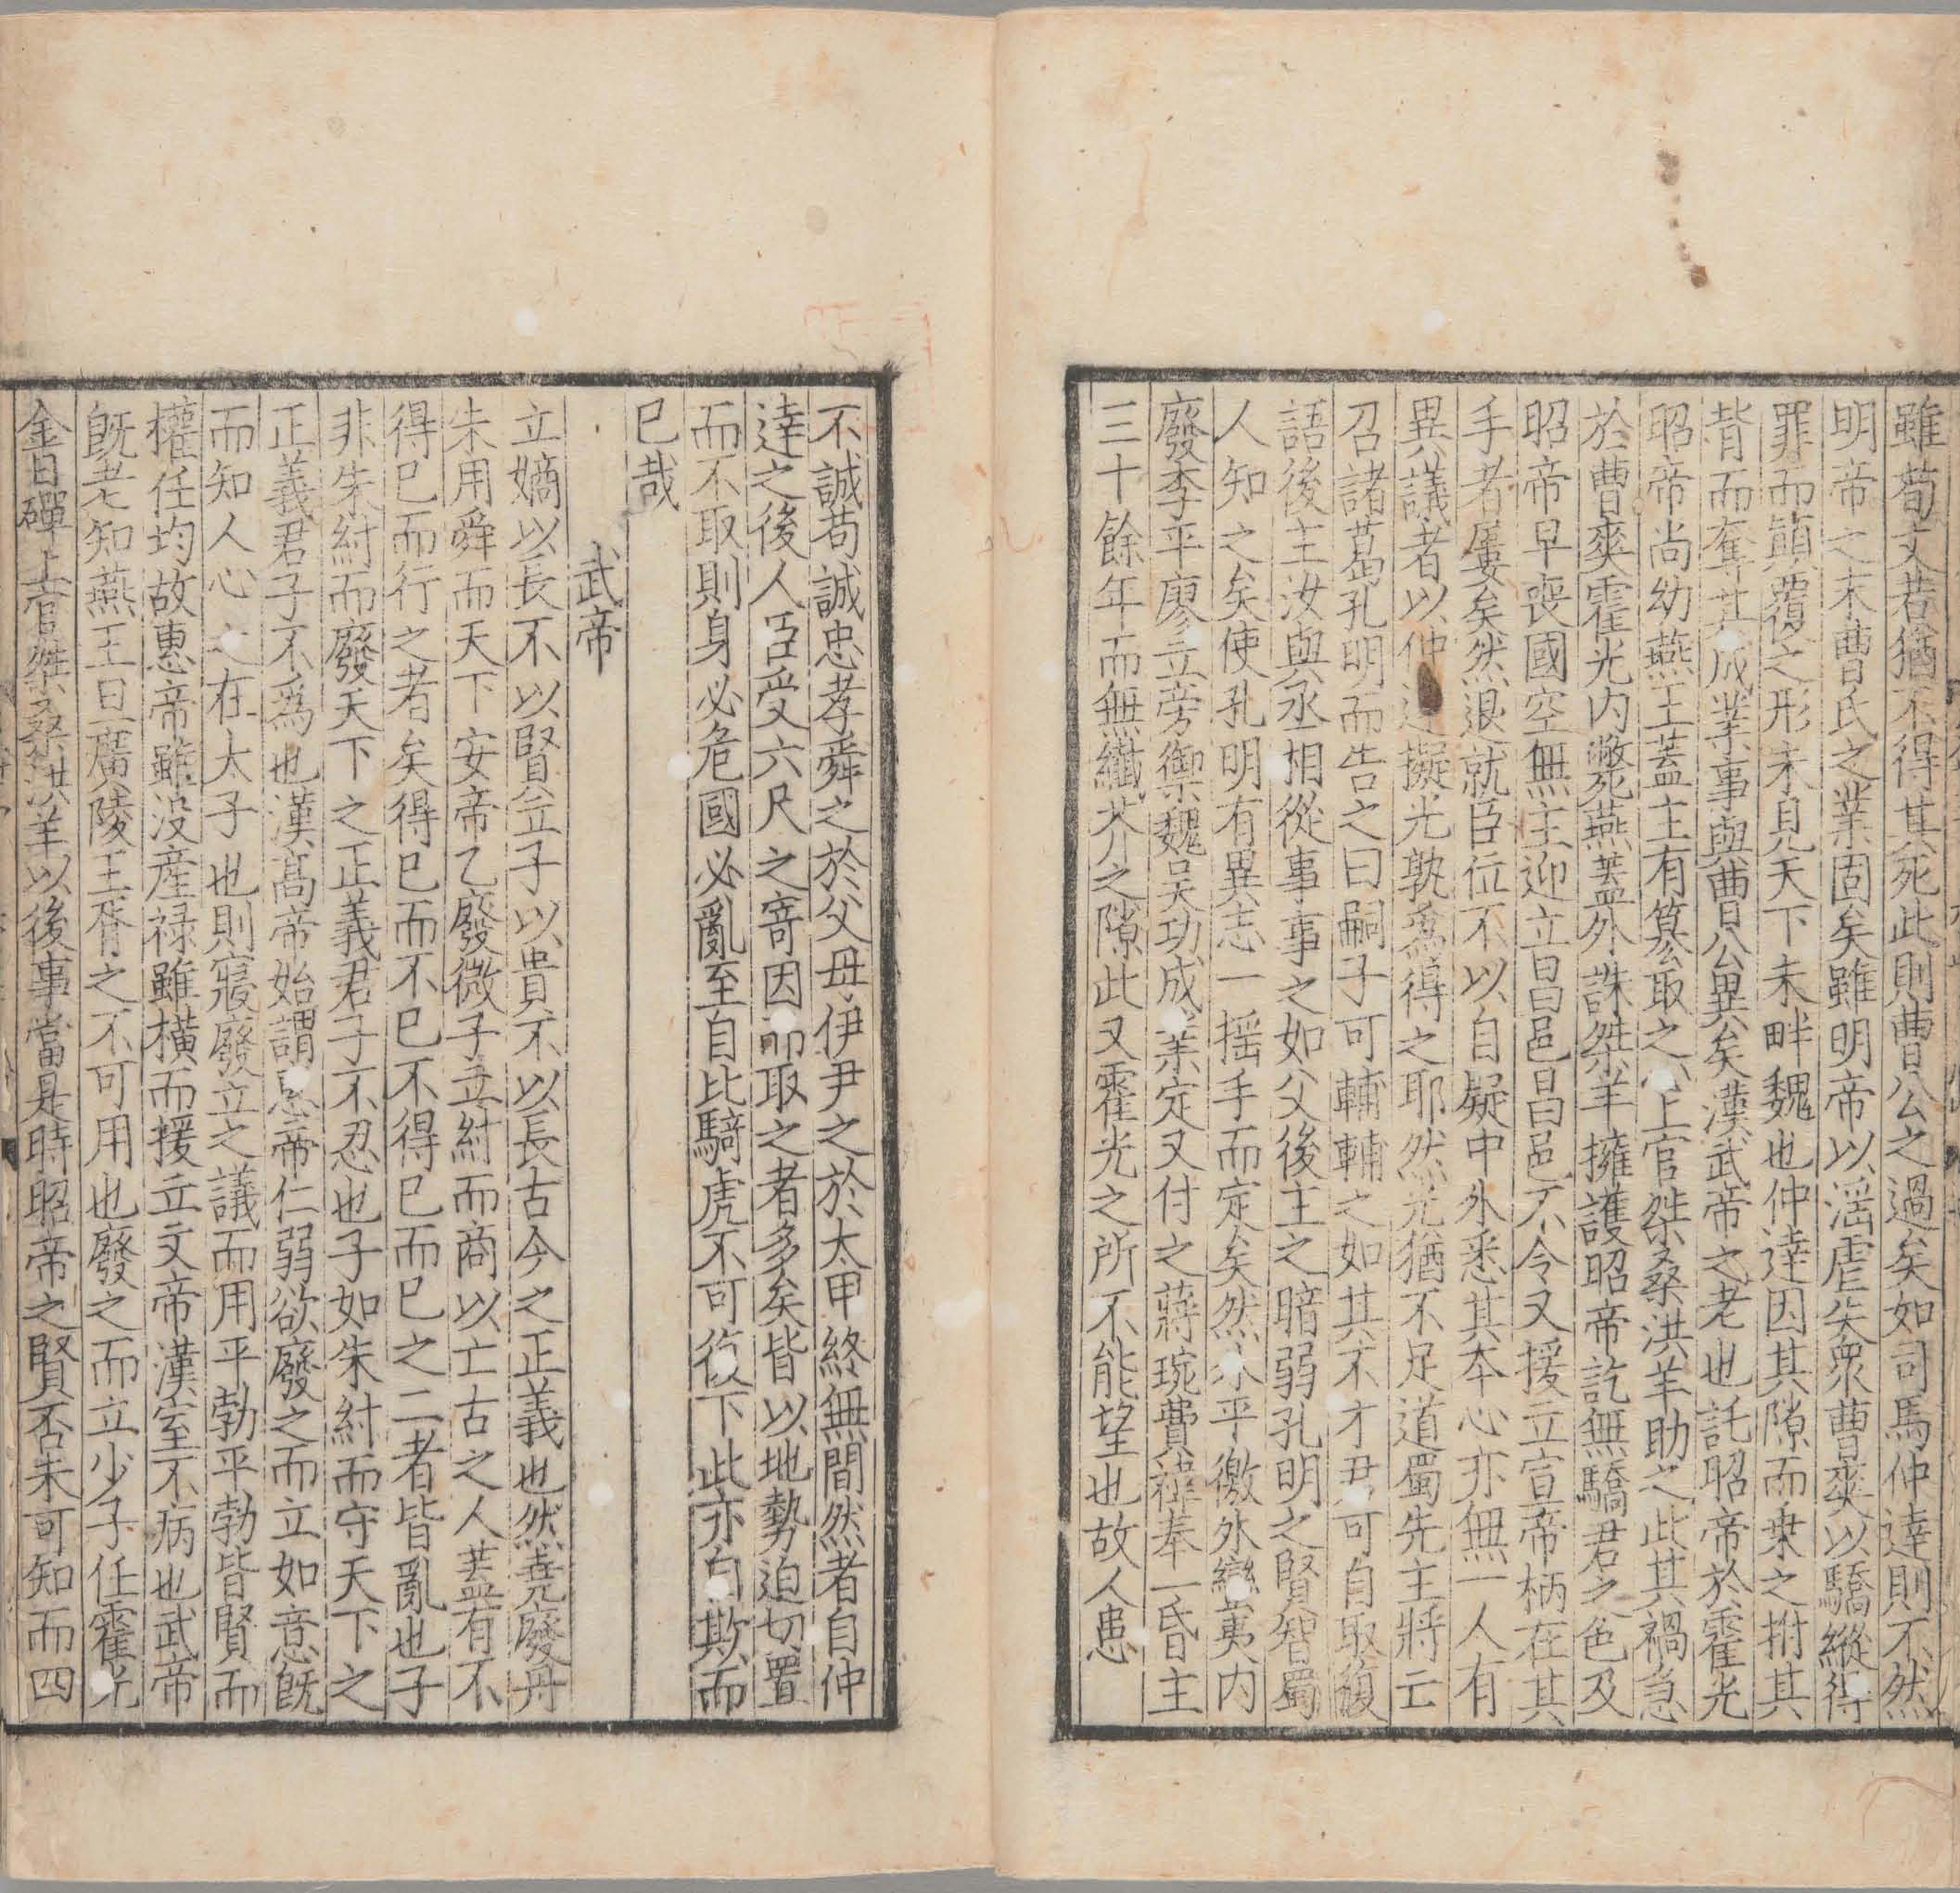 雖荀文若猶不得其死此則曹公之過矣如司馬仲達則不然
明帝之末曹氏之業固矣雖明帝以淫虐失衆曹爽以驕縱得
罪而顛覆之形未見天下未畔魏也仲達因其隙而乗之拊其
背而奪其成業事與曹公異矣漢武帝之老也託昭帝於霍光
昭帝尚幼燕王蓋主有篡取之心上官桀桑洪羊助之此其禍急
於曹爽霍光内斃燕蓋外誅桀羊擁護昭帝訖無驕君之色及
昭帝早喪國空無主迎立昌邑昌邑不令又援立宣帝柄在其
手者屢矣然退就臣位不以自疑中外悉其本心亦無一人有
異議者以仲達擬光孰為得之耶然光猶不足道蜀先主將亡
召諸葛孔明而告之曰嗣子可輔輔之如其不才君可自取復
語後主汝與丞相從事事之如父後主之暗弱孔明之賢智蜀
人知之矣使孔明有異志一摇手而定矣然外平徼外蠻夷内
廢李平廖立旁禦魏吳功成業定又付之蔣琬費禕奉一昏主
三十餘年而無纖芥之隙此又霍光之所不能望也故人患
不誠苟誠忠孝舜之於父母伊尹之於太甲終無間然者自仲
達之後人臣受六尺之寄因而取之者多矣皆以地勢迫切置
而不取則身必危國必亂至自比騎虎不可復下此亦自欺而
已哉
武帝
立嫡以長不以賢立子以貴不以長古今之正義也然堯廢丹
朱用舜而天下安帝乙廢微子立紂而商以亡古之人蓋有不
得已而行之者矣得已而不已不得已而已之二者皆亂也子
非朱紂而廢天下之正義君子不忍也子如朱紂而守天下之
正義君子不為也漢髙帝始謂惠帝仁弱欲廢之而立如意旣
而知人心之在太子也則寢廢立之議而用平勃平勃皆賢而
權任均故惠帝雖没產禄雖橫而援立文帝漢室不病也武帝
旣老知燕王旦廣陵王胥之不可用也廢之而立少子任霍光
金日磾上官桀桑洪羊以後事當是時昭帝之賢否未可知而四